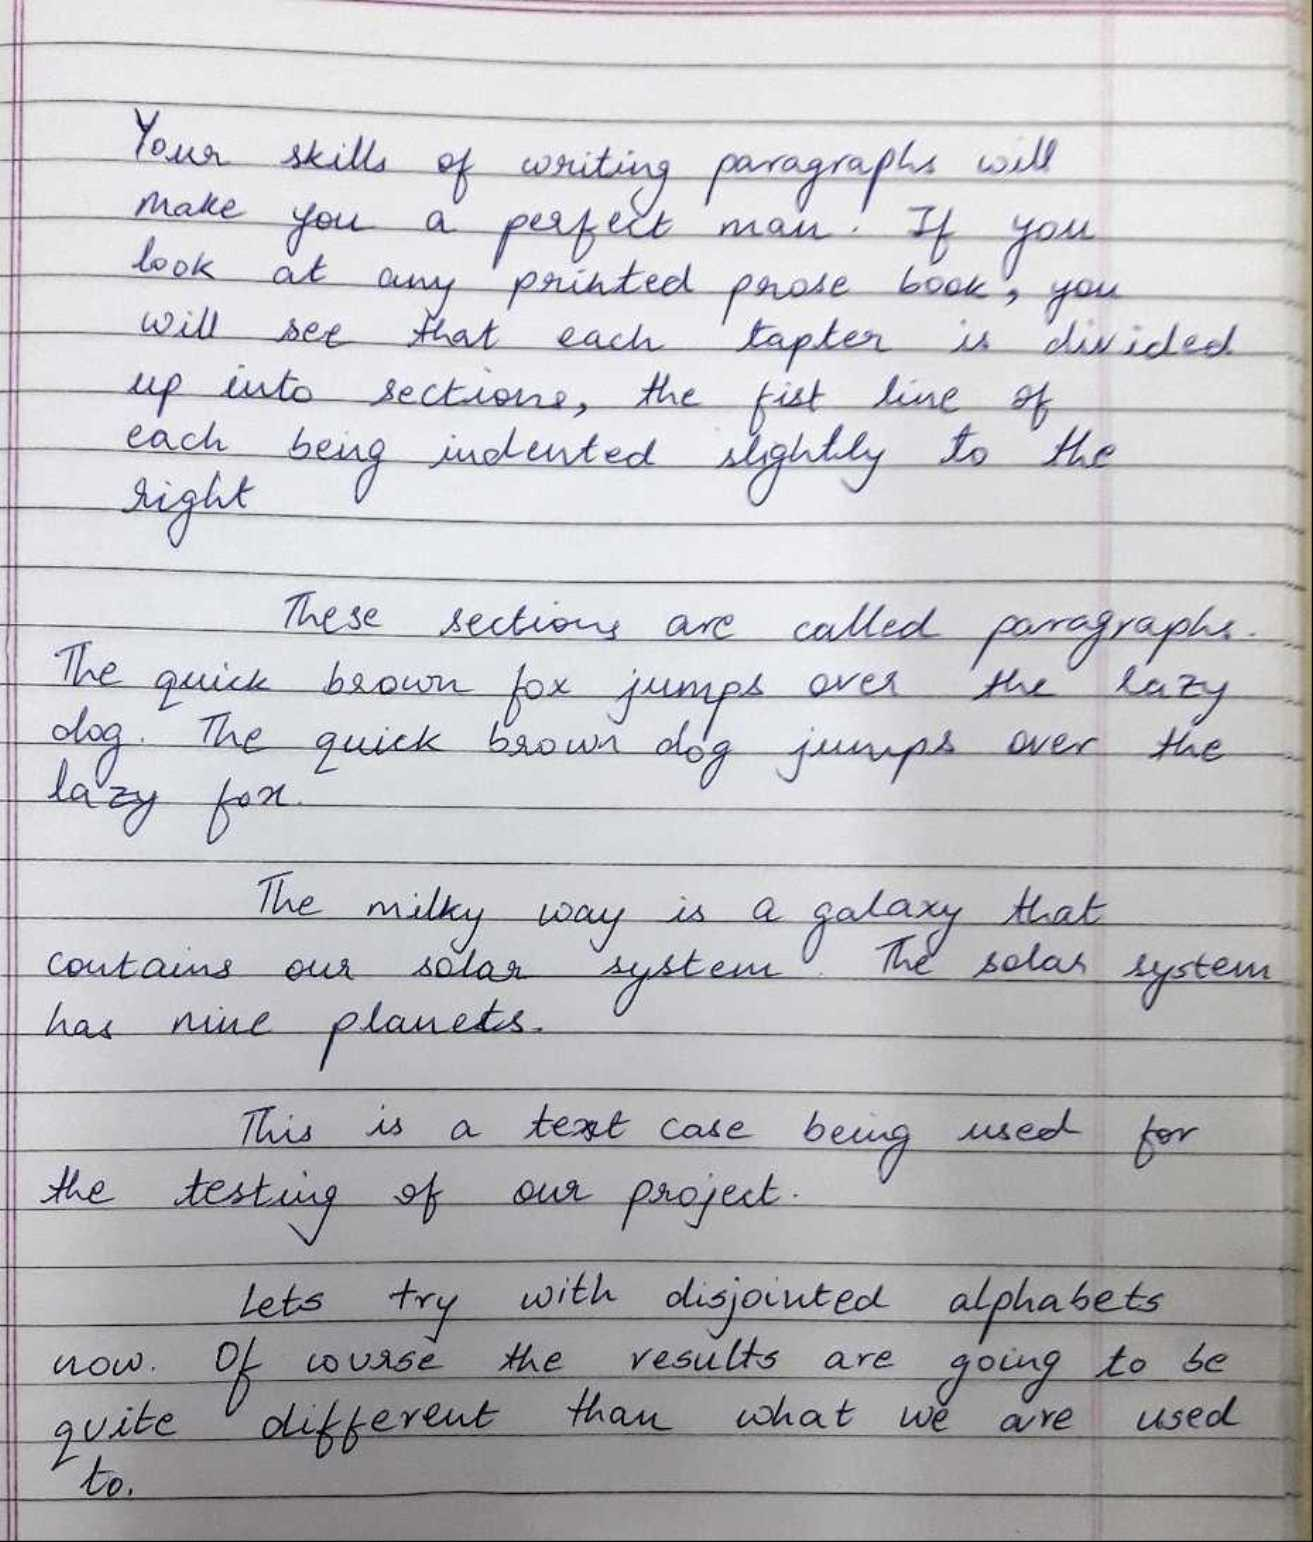 Your skills of writing paragraphs will
make you a perfect man. If you
look at any printed prose book, you
will see that each tapter is divided
up into sections, the fist line of
each being indented slightly to the
right
These sections are called paragraphs.
The quick brown fox jumps over the lazy
dog. The quick brown dog jumps over the
lazy fox.
The milky way is a galaxy that
contains our solar system. The solar system
has nine planets.
This is a test case being used for
the testing of our project.
Lets try with disjointed alphabets
now. Of course the results are going to be
quite different than what we are used
to.